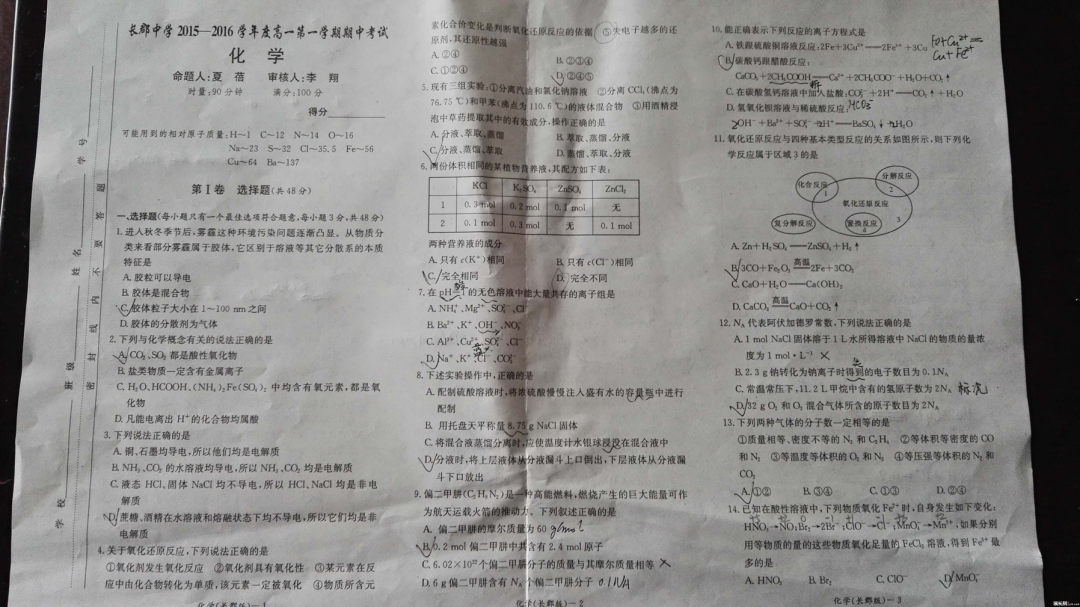 长郡中学 2015—2016 学年度高一第一学期期中考试
化 学
命题人:夏 蓓 审核人:李 翔
时量:90 分钟 满分:100 分
得分
可能用到的相对原子质量:H~1 C~12 N~14 O~16
Na~23 S~32 Cl~35.5 Fe~56
Cu~64 Ba~137
第Ⅰ卷 选择题(共 48 分)
一、选择题(每小题只有一个最佳选项符合题意,每小题 3 分,共 48 分)
1. 进入秋冬季节后,雾霾这种环境污染问题逐渐凸显。从物质分
类来看部分雾霾属于胶体,它区别于溶液等其它分散系的本质
特征是
A. 胶粒可以导电
B. 胶体是混合物
C. 胶体粒子大小在 1~100 nm 之间
D. 胶体的分散剂为气体
2. 下列与化学概念有关的说法正确的是
A. CO₂、SO₂ 都是酸性氧化物
B. 盐类物质一定含有金属离子
C. H₂O、HCOOH、(NH₄)₂Fe(SO₄)₂ 中均含有氧元素,都是氧
化物
D. 凡能电离出 H⁺ 的化合物均属酸
3. 下列说法正确的是
A. 铜、石墨均导电,所以他们均是电解质
B. NH₃、CO₂ 的水溶液均导电,所以 NH₃、CO₂ 均是电解质
C. 液态 HCl、固体 NaCl 均不导电,所以 HCl、NaCl 均是非电
解质
D. 蔗糖、酒精在水溶液和熔融状态下均不导电,所以它们均是非
电解质
4. 关于氧化还原反应,下列说法正确的是
①氧化剂发生氧化反应 ②氧化剂具有氧化性 ③某元素在反
应中由化合物转化为单质,该元素一定被氧化 ④物质所含元
化学(长郡版)—1
学校
班级
姓名
学号
密 封 线 内 不 要 答 题
素化合价变化是判断氧化还原反应的依据 ⑤失电子越多的还
原剂,其还原性越强
A. ②④ B. ②③④
C. ①②④ D. ②④⑤
5. 现有三组实验:①分离汽油和氯化钠溶液 ②分离 CCl₄(沸点为
76.75 ℃)和甲苯(沸点为 110.6 ℃)的液体混合物 ③用酒精浸
泡中草药提取其中的有效成分,操作正确的是
A. 分液、萃取、蒸馏 B. 萃取、蒸馏、分液
C. 分液、蒸馏、萃取 D. 蒸馏、萃取、分液
6. 两份体积相同的某植物营养液,其配方如下表:
KCl K₂SO₄ ZnSO₄ ZnCl₂
1 0.3 mol 0.2 mol 0.1 mol 无
2 0.1 mol 0.3 mol 无 0.1 mol
两种营养液的成分
A. 只有 c(K⁺)相同 B. 只有 c(Cl⁻)相同
C. 完全相同 D. 完全不同
7. 在 pH=1 的无色溶液中能大量共存的离子组是
A. NH₄⁺、Mg²⁺、SO₄²⁻、Cl⁻
B. Ba²⁺、K⁺、OH⁻、NO₃⁻
C. Al³⁺、Cu²⁺、SO₄²⁻、Cl⁻
D. Na⁺、K⁺、Cl⁻、CO₃²⁻
8. 下述实验操作中,正确的是
A. 配制硫酸溶液时,将浓硫酸慢慢注入盛有水的容量瓶中进行
配制
B. 用托盘天平称量 8.75 g NaCl 固体
C. 将混合液蒸馏分离时,应使温度计水银球浸没在混合液中
D. 分液时,将上层液体从分液漏斗上口倒出,下层液体从分液漏
斗下口放出
9. 偏二甲肼(C₂H₈N₂)是一种高能燃料,燃烧产生的巨大能量可作
为航天运载火箭的推动力。下列叙述正确的是
A. 偏二甲肼的摩尔质量为 60 g/mol
B. 0.2 mol 偏二甲肼中共含有 2.4 mol 原子
C. 6.02×10²³ 个偏二甲肼分子的质量与其摩尔质量相等 ×
D. 6 g 偏二甲肼含有 Nᴀ 个偏二甲肼分子 0.1NA
化学(长郡版)—2
10. 能正确表示下列反应的离子方程式是
A. 铁跟硫酸铜溶液反应:2Fe+3Cu²⁺══2Fe³⁺+3Cu Fe+Cu²⁺=
Cu+Fe²⁺
B. 碳酸钙跟醋酸反应:
CaCO₃+2CH₃COOH══Ca²⁺+2CH₃COO⁻+H₂O+CO₂↑
C. 在碳酸氢钙溶液中加入盐酸:CO₃²⁻+2H⁺══CO₂↑+H₂O
D. 氢氧化钡溶液与稀硫酸反应: HCO₃⁻
2OH⁻+Ba²⁺+SO₄²⁻+2H⁺══BaSO₄↓+2H₂O
11. 氧化还原反应与四种基本类型反应的关系如图所示,则下列化
学反应属于区域 3 的是
化合反应 1
分解反应 2
氧化还原反应
3
复分解反应
置换反应 4
A. Zn+H₂SO₄══ZnSO₄+H₂↑
B. 3CO+Fe₂O₃ 高温 2Fe+3CO₂
C. CaO+H₂O══Ca(OH)₂
D. CaCO₃ 高温 CaO+CO₂↑
12. Nᴀ 代表阿伏加德罗常数,下列说法正确的是
A. 1 mol NaCl 固体溶于 1 L 水所得溶液中 NaCl 的物质的量浓
度为 1 mol·L⁻¹ ×
B. 2.3 g 钠转化为钠离子时得到的电子数目为 0.1Nᴀ
C. 常温常压下,11.2 L 甲烷中含有的氢原子数为 2Nᴀ 标况
D. 32 g O₂ 和 O₃ 混合气体所含的原子数目为 2Nᴀ
13. 下列两种气体的分子数一定相等的是
①质量相等、密度不等的 N₂ 和 C₂H₄ ②等体积等密度的 CO
和 N₂ ③等温度等体积的 O₂ 和 N₂ ④等压强等体积的 N₂ 和
CO₂
A. ①② B. ③④ C. ①③ D. ②④
14. 已知在酸性溶液中,下列物质氧化 Fe²⁺时,自身发生如下变化:
HNO₃→NO;Br₂→2Br⁻;ClO⁻→Cl⁻;MnO₄⁻→Mn²⁺,如果分别
用等物质的量的这些物质氧化足量的 FeCl₂ 溶液,得到 Fe³⁺最
多的是
A. HNO₃ B. Br₂ C. ClO⁻ D. MnO₄⁻
化学(长郡版)—3